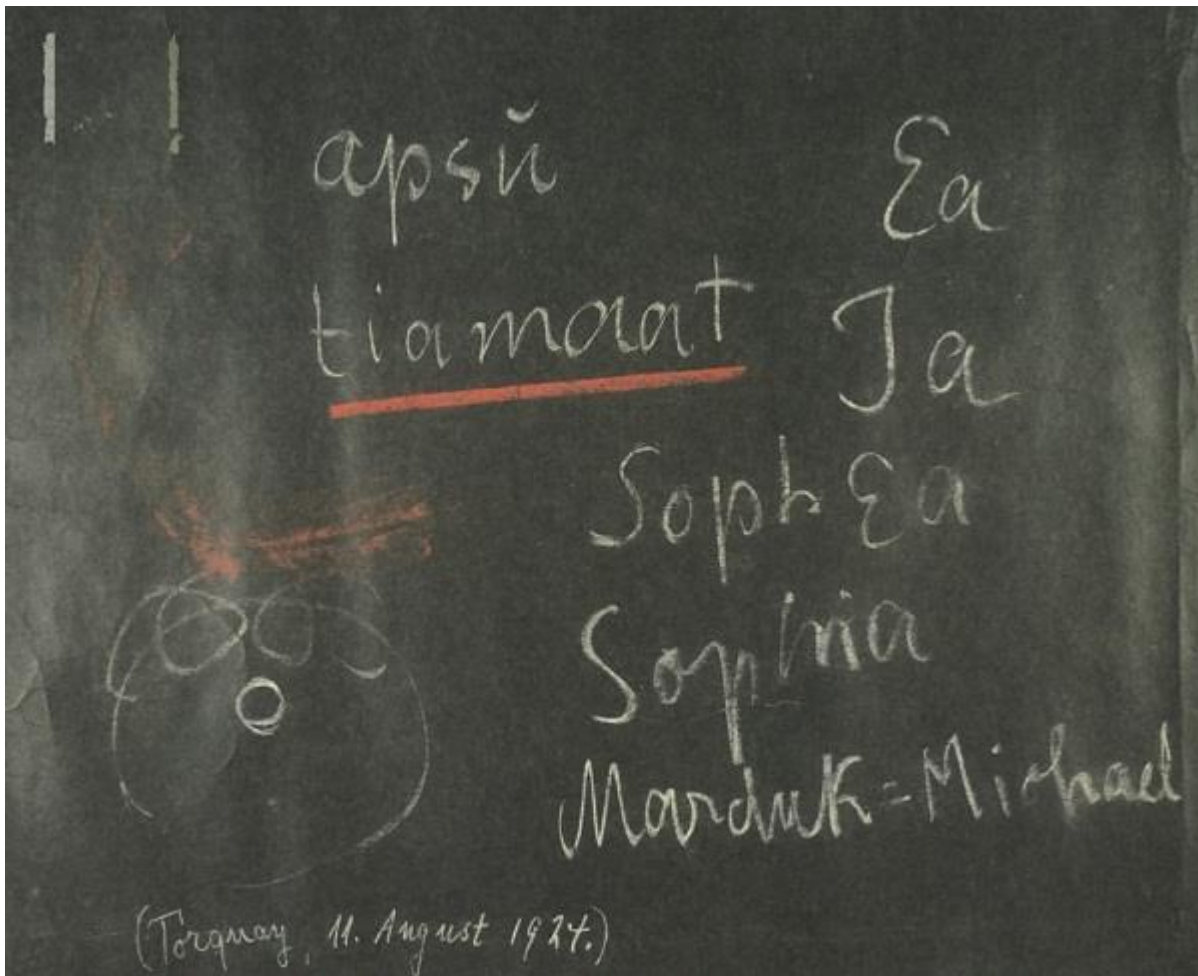 apsŭ Ea
tiamaat Ja
Soph Ea
Sophia
Marduk=Michael
(Torquay, 11. August 1924.)